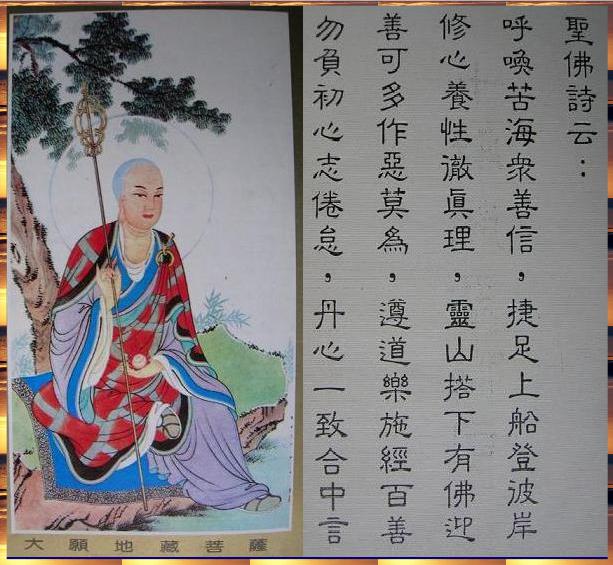 聖佛詩云：
呼喚苦海衆善信，捷足上船登彼岸
修心養性徹眞理，靈山搭下有佛迎
善可多作惡莫為，遵道樂施經百善
勿負初心志倦怠，丹心一致合中言
大願地藏菩薩